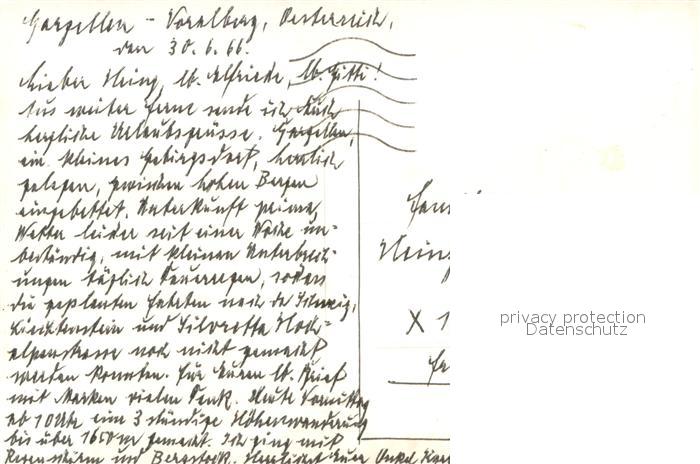 Gargellen - Voralberg, Oesterreich,
den 30.6.66.
Lieber Heinz, lb. Elfriede, lb. Gitti!
Aus weiter Ferne sende ich Euch
herzliche Urlaubsgrüsse. Gargellen,
ein kleines Gebirgsdorf, herrlich
gelegen, zwischen hohen Bergen
eingebettet. Unterkunft prima,
Wetter leider seit einer Woche un-
beständig, mit kleinen Unterbrech-
ungen täglich Dauerregen, sodass
die geplanten Fahrten nach der Schweiz,
Liechtenstein und Silvretta Hoch-
alpenstrasse noch nicht gemacht
werden konnten. Für Euren lb. Brief
mit Marken vielen Dank. Heute Vormittag
ab 10 Uhr eine 3 stündige Höhenwanderung
bis über 1600 m gemacht. Ich ging mit
Regenschirm und Bergstock. Herzlichst Euer Onkel
Fam
Heinz
X 1
privacy protection
Datenschutz